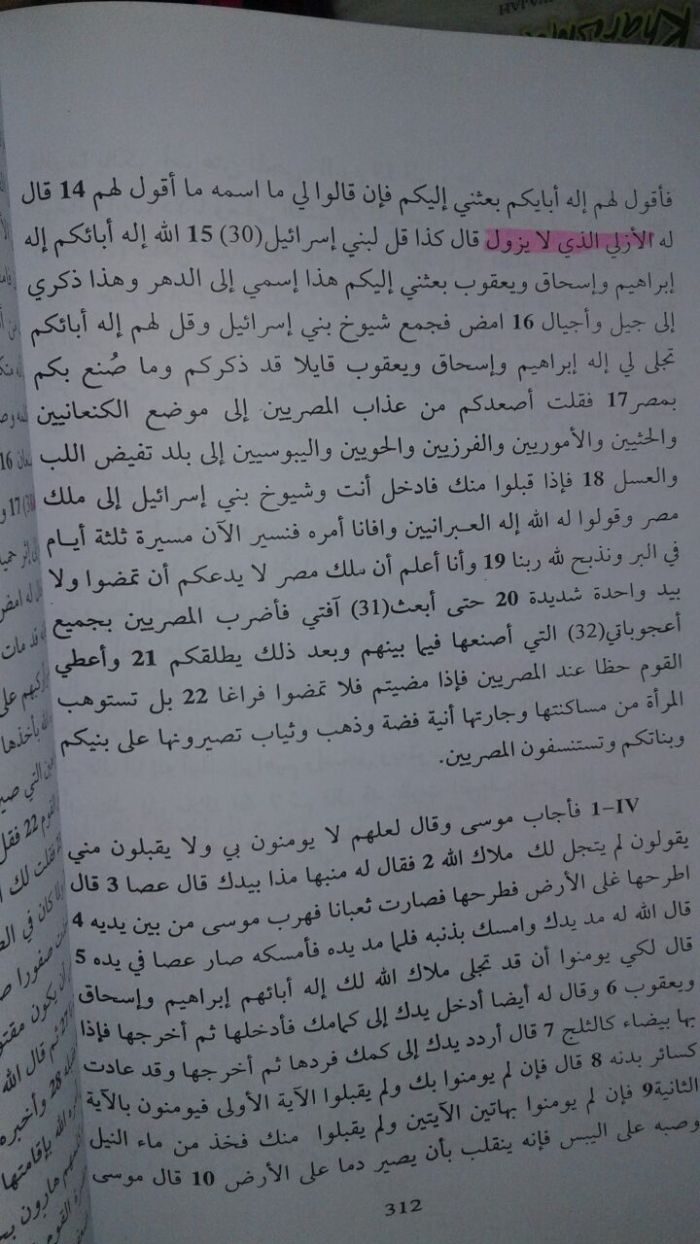 فأقول لهم إله أبايكم بعثني إليكم فإن قالوا لي ما اسمه ما أقول لهم 14 قال
له الأزلي الذي لا يزول قال كذا قل لبني إسرائيل(30) 15 الله إله أبائكم إله
إبراهيم وإسحاق ويعقوب بعثني إليكم هذا إسمي إلى الدهر وهذا ذكري
إلى جيل وأجيال 16 امض فجمع شيوخ بني إسرائيل وقل لهم إله أبائكم
تجلى لي إله إبراهيم وإسحاق ويعقوب قايلا قد ذكركم وما صُنع بكم
بمصر17 فقلت أصعدكم من عذاب المصريين إلى موضع الكنعانيين
والحثيين والأموريين والفرزيين والحويين واليبوسيين إلى بلد تفيض اللب
والعسل 18 فإذا قبلوا منك فادخل أنت وشيوخ بني إسرائيل إلى ملك
مصر وقولوا له الله إله العبرانيين وافانا أمره فنسير الآن مسيرة ثلثة أيام
في البر ونذبح لله ربنا 19 وأنا أعلم أن ملك مصر لا يدعكم أن تمضوا ولا
بيد واحدة شديدة 20 حتى أبعث(31) آفتي فأضرب المصريين بجميع
أعجوباتي(32) التي أصنعها فيما بينهم وبعد ذلك يطلقكم 21 وأعطي
القوم حظا عند المصريين فإذا مضيتم فلا تمضوا فراغا 22 بل تستوهب
المرأة من مساكنتها وجارتها أنية فضة وذهب وثياب تصيرونها على بنيكم
وبناتكم وتستنسفون المصريين.
1-IV فأجاب موسى وقال لعلهم لا يومنون بي ولا يقبلون مني
يقولون لم يتجل لك ملاك الله 2 فقال له منبها مذا بيدك قال عصا 3 قال
اطرحها غلى الأرض فطرحها فصارت ثعبانا فهرب موسى من بين يديه 4
قال الله له مد يدك وامسك بذنبه فلما مد يده فأمسكه صار عصا في يده 5
قال لكي يومنوا أن قد تجلى ملاك الله لك إله أبائهم إبراهيم وإسحاق
ويعقوب 6 وقال له أيضا أدخل يدك إلى كمامك فأدخلها ثم أخرجها فإذا
بها بيضاء كالثلج 7 قال أردد يدك إلى كمك فردها ثم أخرجها وقد عادت
كسائر بدنه 8 قال فإن لم يومنوا بك ولم يقبلوا الآية الأولى فيومنون بالآية
الثانية9 فإن لم يومنوا بهاتين الآيتين ولم يقبلوا منك فخذ من ماء النيل
وصبه على اليبس فإنه ينقلب بأن يصير دما على الأرض 10 قال موسى
312